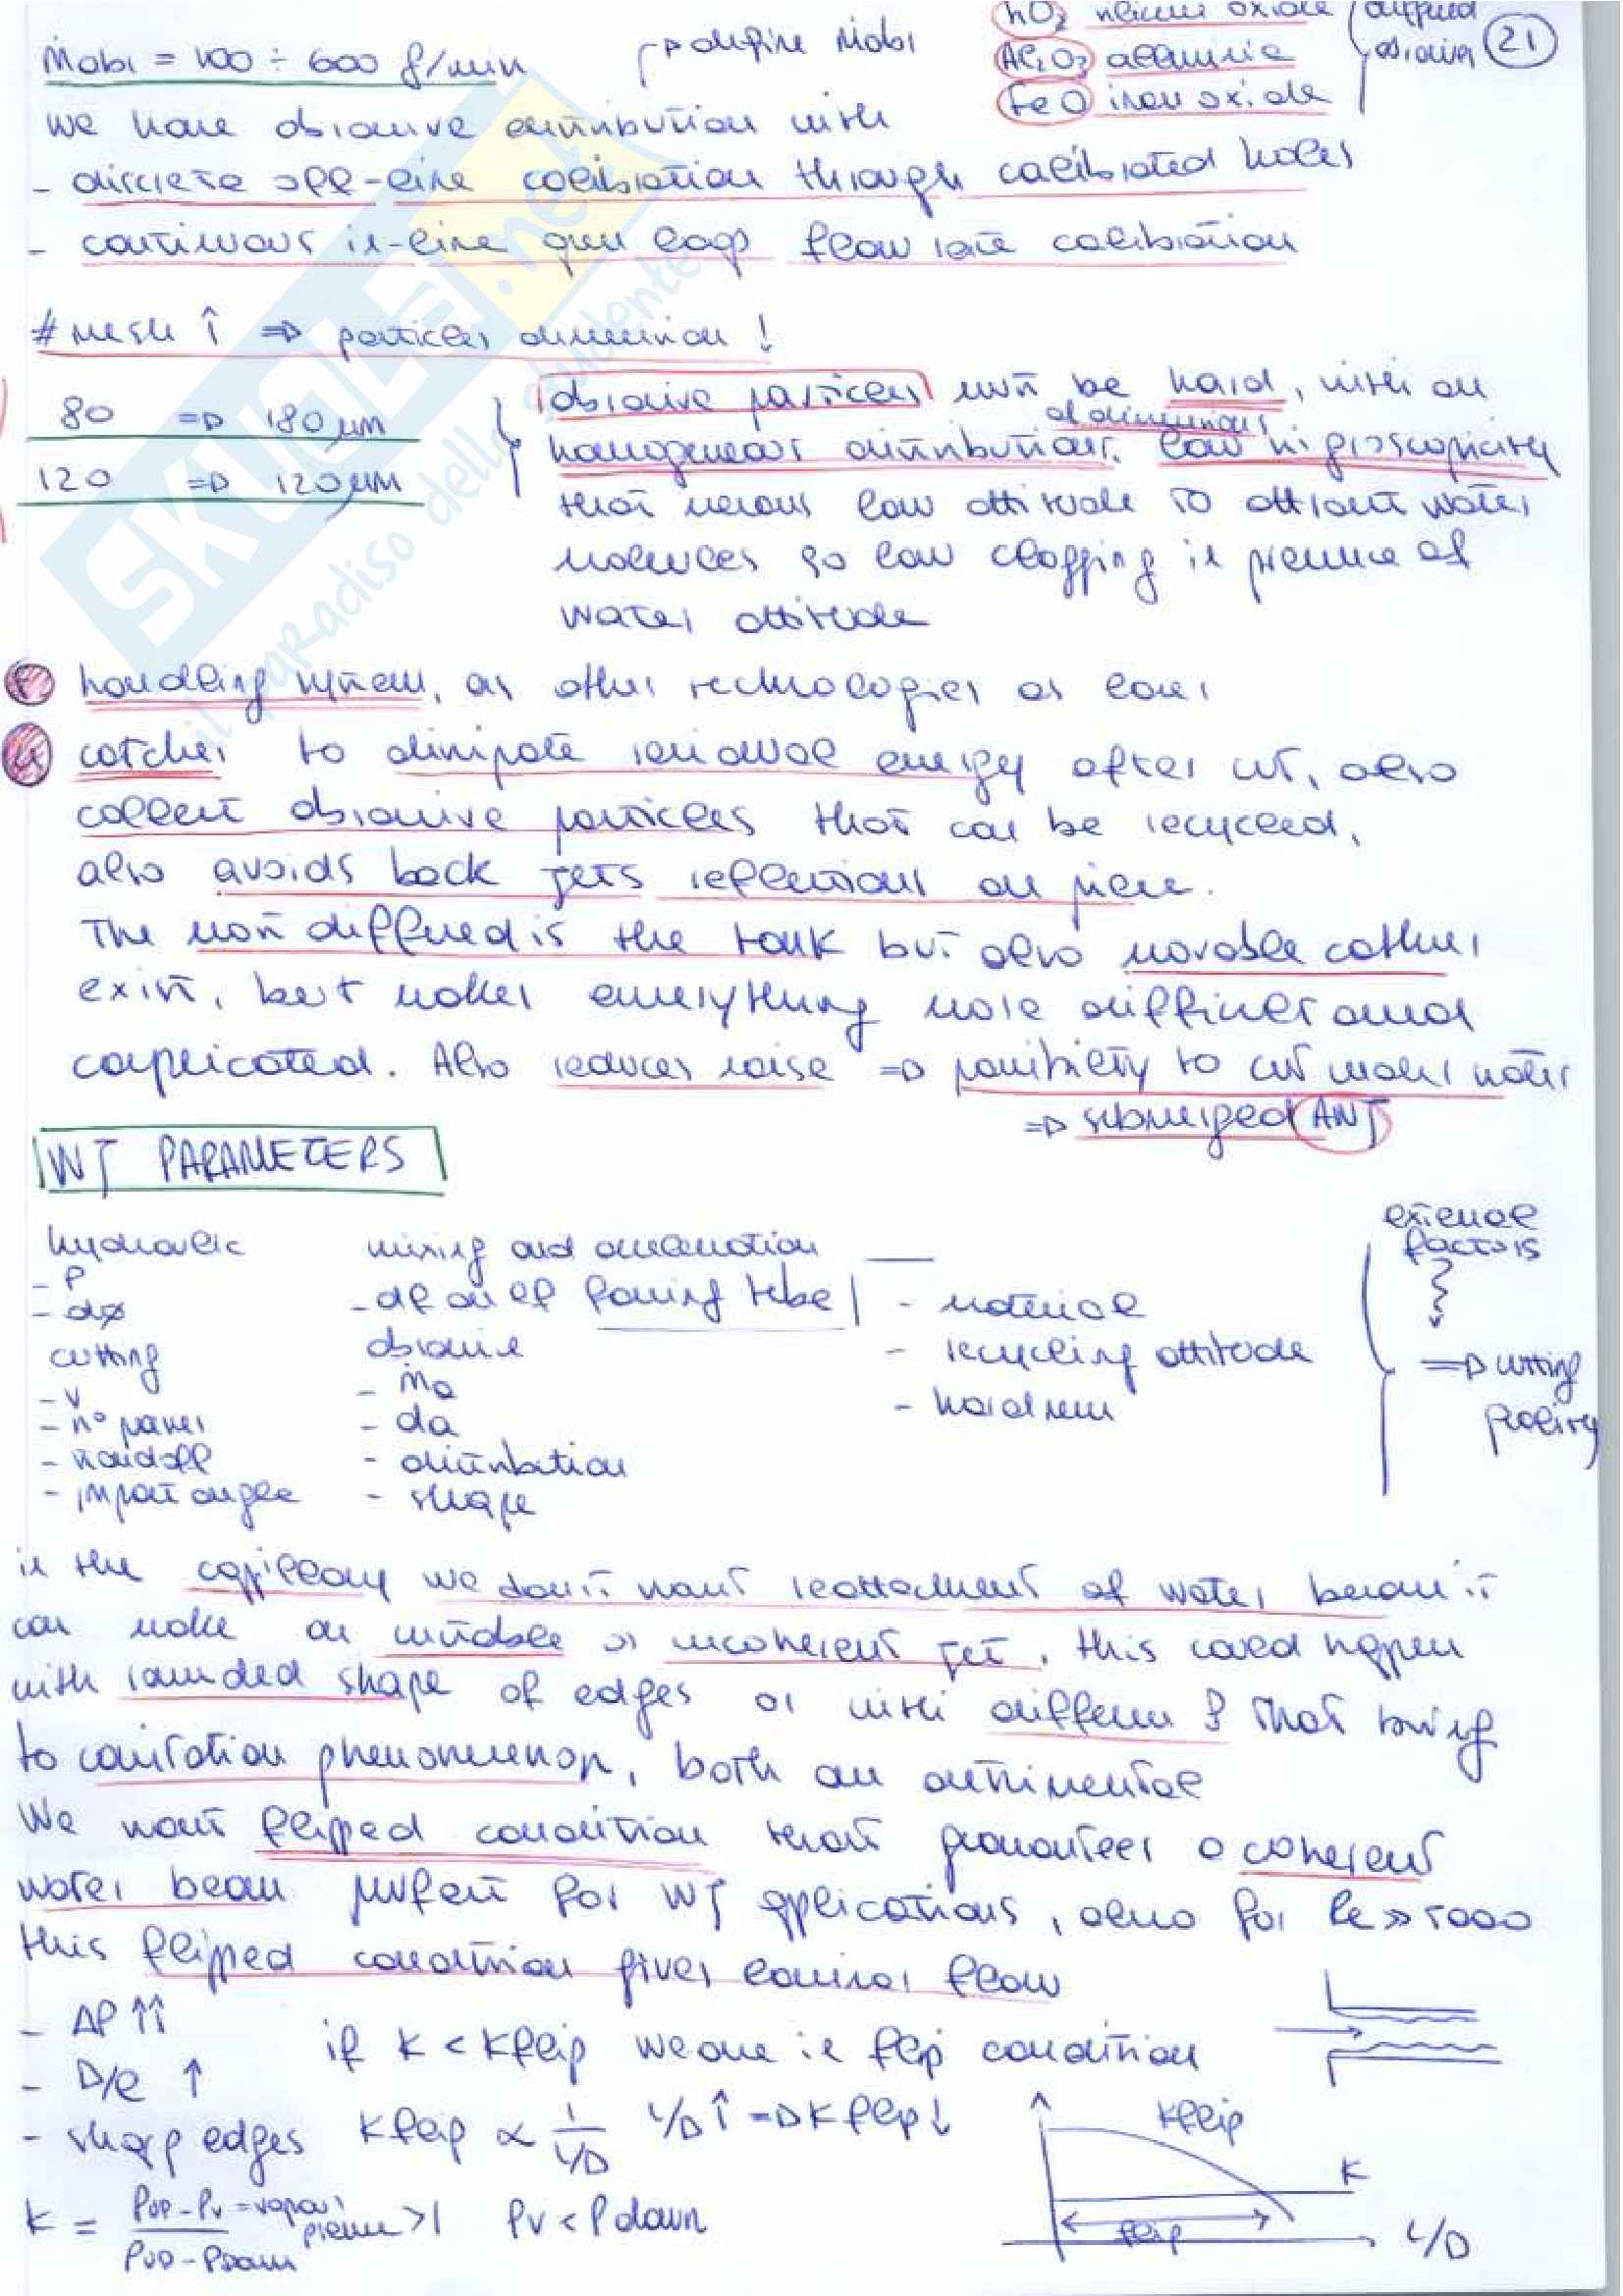 ṁobi = 100 ÷ 600 g/min
hO₂ silicum oxide
Al₂O₃ allumina
FeO iron oxide
diffused abrasives
21
we have abrasive distribution with
- discrete off-line calibration through calibrated holes
- continuous in-line flow rate calibration
# mesh ↑ => particles dimension ↓
80 => 180 μm
120 => 120 μm
abrasive particles must be hard, with an
of dimensions
homogeneous distributions. low higroscopicity
that means low attitude to attract water
molecules so low clogging in presence of
water attitude
handling system, as other technologies as laser
catcher to dissipate residual energy after cut, also
collect abrasive particles that can be recycled,
also avoids back jets reflections on piece.
The most diffused is the tank but also movable catcher
exist, but makes everything more difficult and
complicated. Also reduces noise => possibility to cut under water
=> submerged AWJ
WJ PARAMETERS
hydraulic
- P
- dø
cutting
- v
- n° passes
- standoff
- impact angle
mixing and acceleration
- df on lf focusing tube
abrasive
- ṁa
- da
- distribution
- shape
- material
- recycling attitude
- hardness
external factors
=> cutting quality
in the capillary we don't want reattachment of water beam it
can make an unstable or incoherent jet, this could happen
with rounded shape of edges or with different ρ that bring
to cavitation phenomenon, both are detrimental
We want flipped condition that guarantees a coherent
water beam perfect for WJ applications, also for Re >> 5000
this flipped condition gives laminar flow
- ΔP ↑↑
- D/l ↑
- sharp edges
if K < Kflip we are in flip condition
Kflip ∝ 1/(L/D) L/D ↑ => Kflip ↓
K = (Pup - Pv)/(Pup - Pdown) = vapour pressure > 1 Pv < Pdown
Kflip
K
flip
L/D
SKUOLA.net
il paradiso dello studente